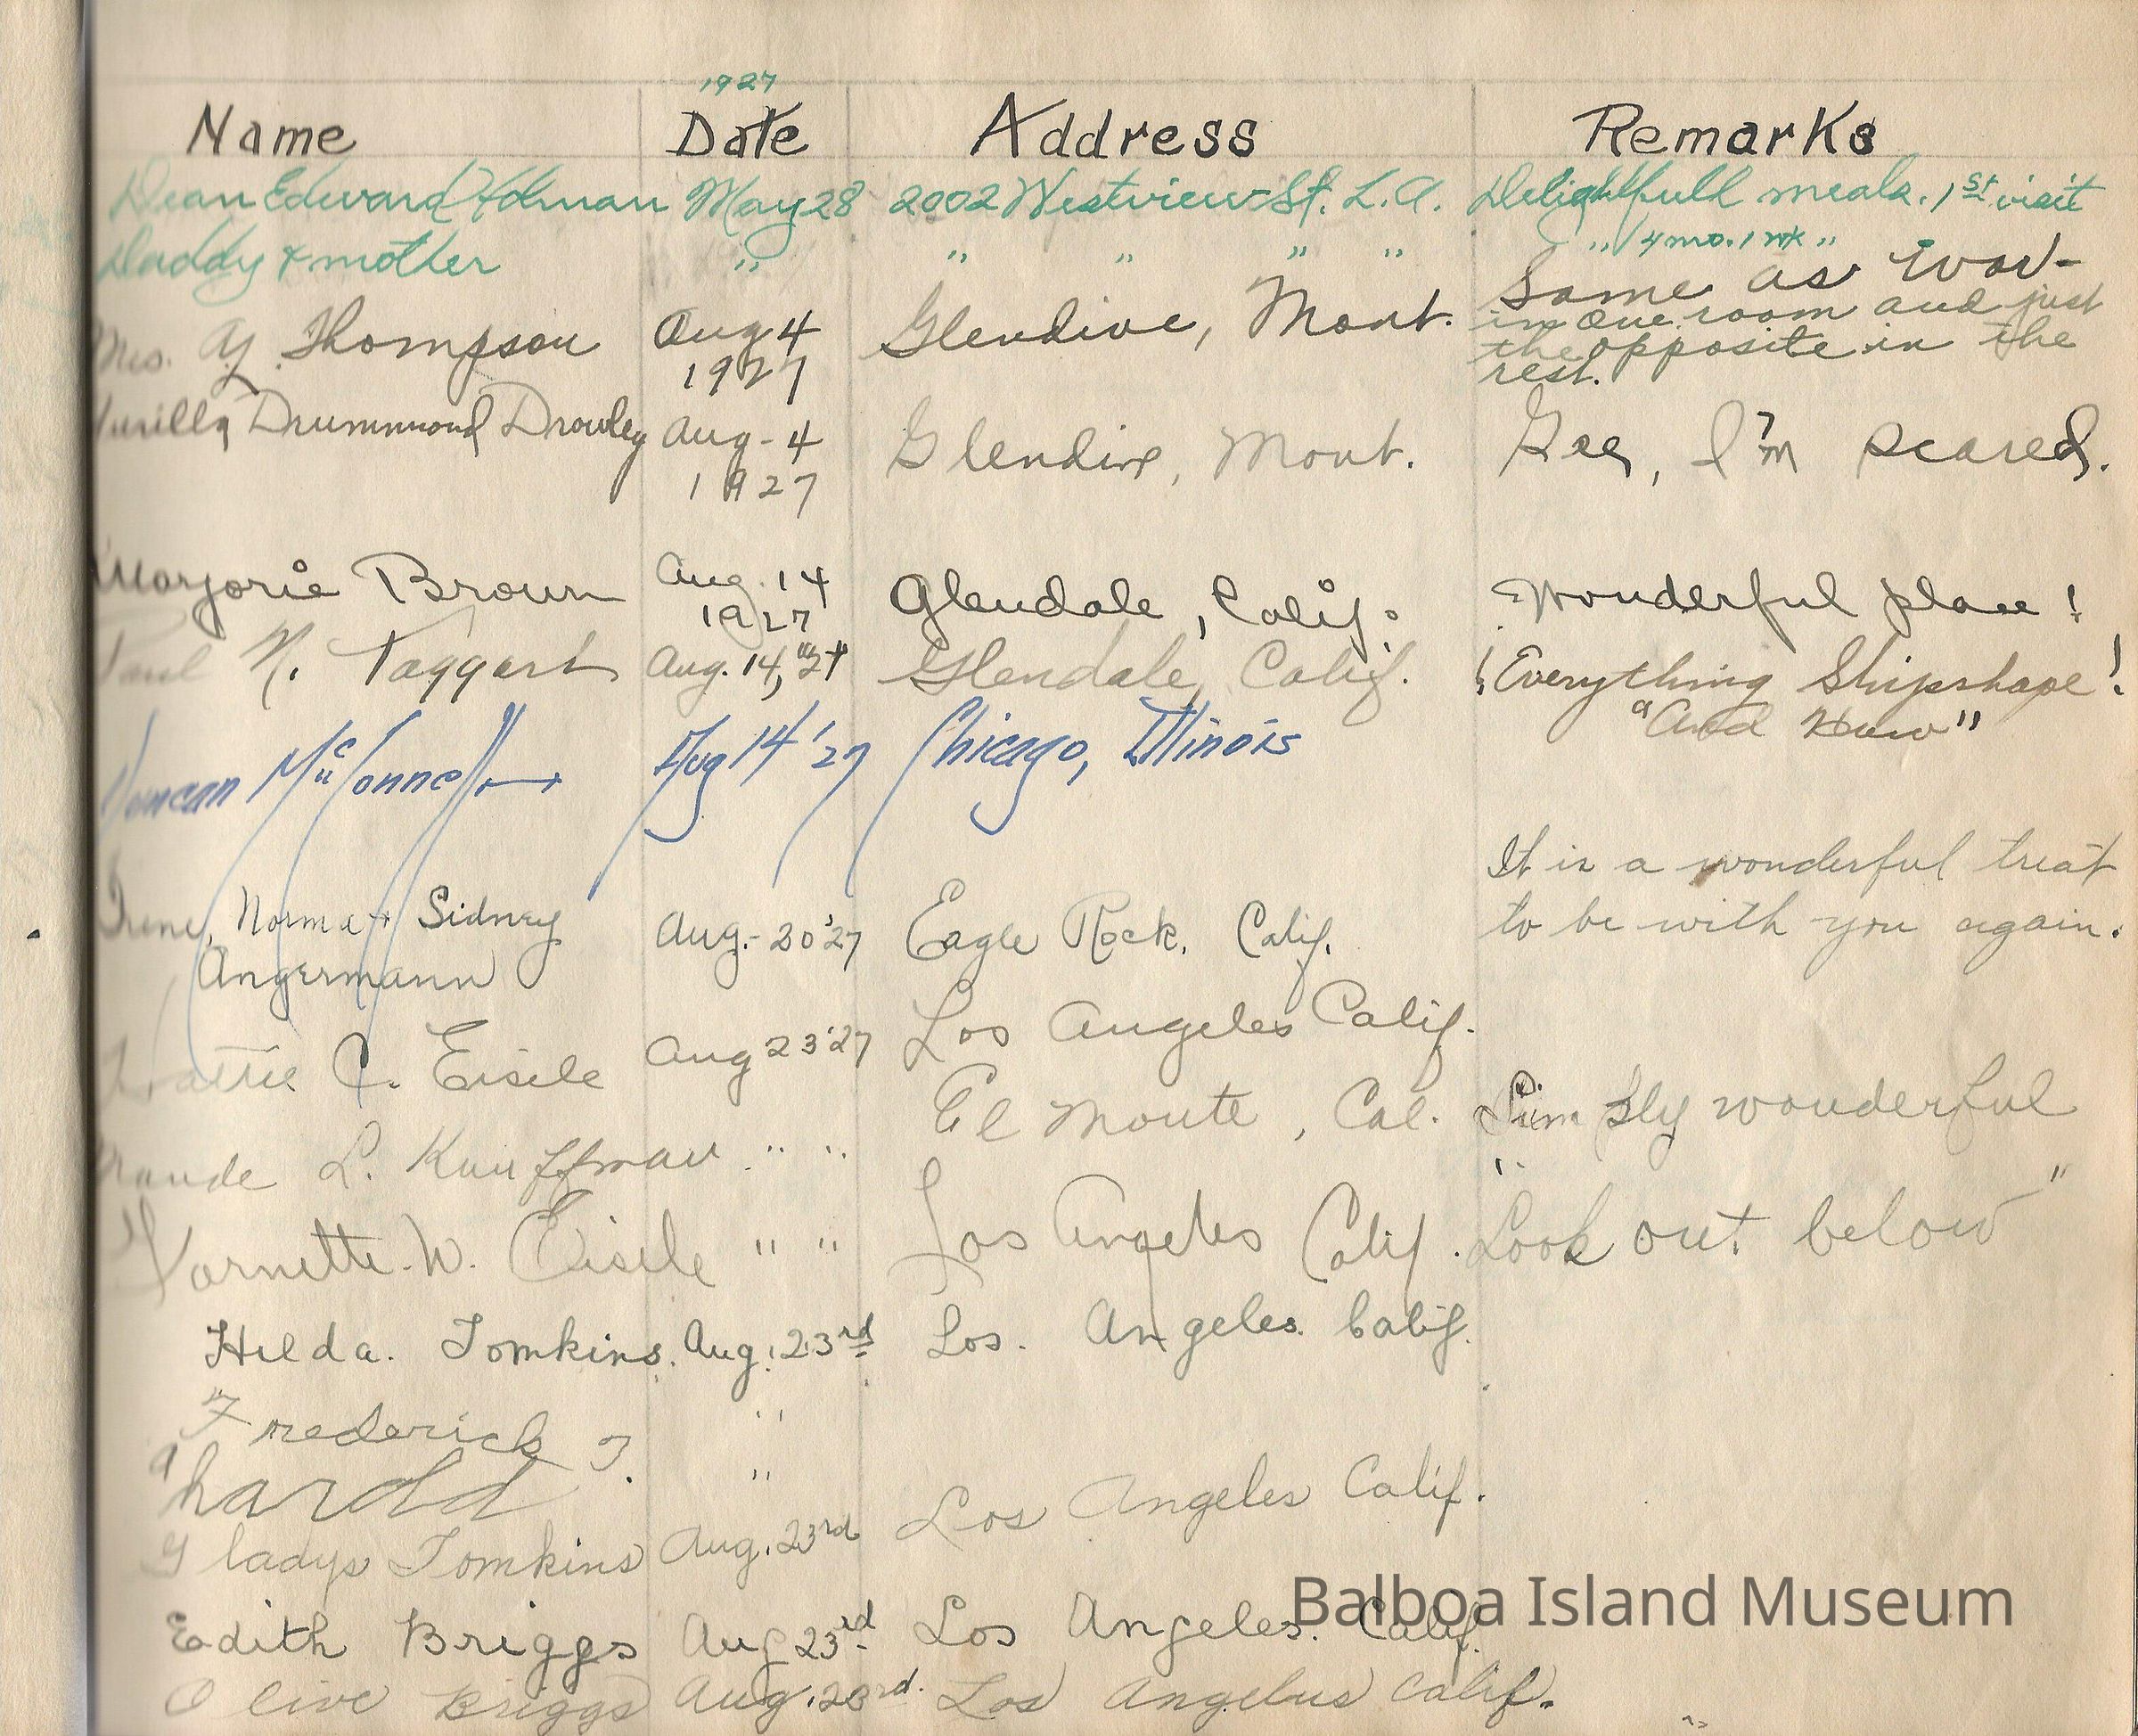 1927
Name Date Address Remarks
Dean Edward Holman May 28 2002 Westview St. L.A. Delightfull meals. 1st visit
" 4 mo. 1 wk "
Daddy & mother " " " " "
Same as war-
Mrs. Thompson Aug 4 Glendive, Mont. in one room and just
1927 the opposite in the
rest.
Drummond Drowley Aug - 4 Glendive, Mont. Gee, I'm scared.
1927
Marjorie Brown Aug. 14 Glendale, Calif. Wonderful place!
1927
Paul N. Taggart Aug. 14, "27 Glendale, Calif. ! Everything Shipshape!
"And How"
Duncan McConnell Aug 14 '27 Chicago, Illinois
It is a wonderful treat
Irene, Norma + Sidney Aug.- 20 '27 Eagle Rock, Calif. to be with you again.
Angermann
C. Eisele Aug 23 '27 Los Angeles Calif.
Maude L. Kauffman " " El Monte, Cal. Simply wonderful
W. Eisele " " Los Angeles Calif. "Look out below"
Hilda. Tomkins. Aug. 23rd Los. Angeles. Calif.
Frederick T. "
harold "
Gladys Tomkins Aug. 23rd Los Angeles Calif.
Edith Briggs Aug 23rd Los Angeles. Calif.
Olive Briggs Aug. 23rd. Los Angelus Calif.
Balboa Island Museum